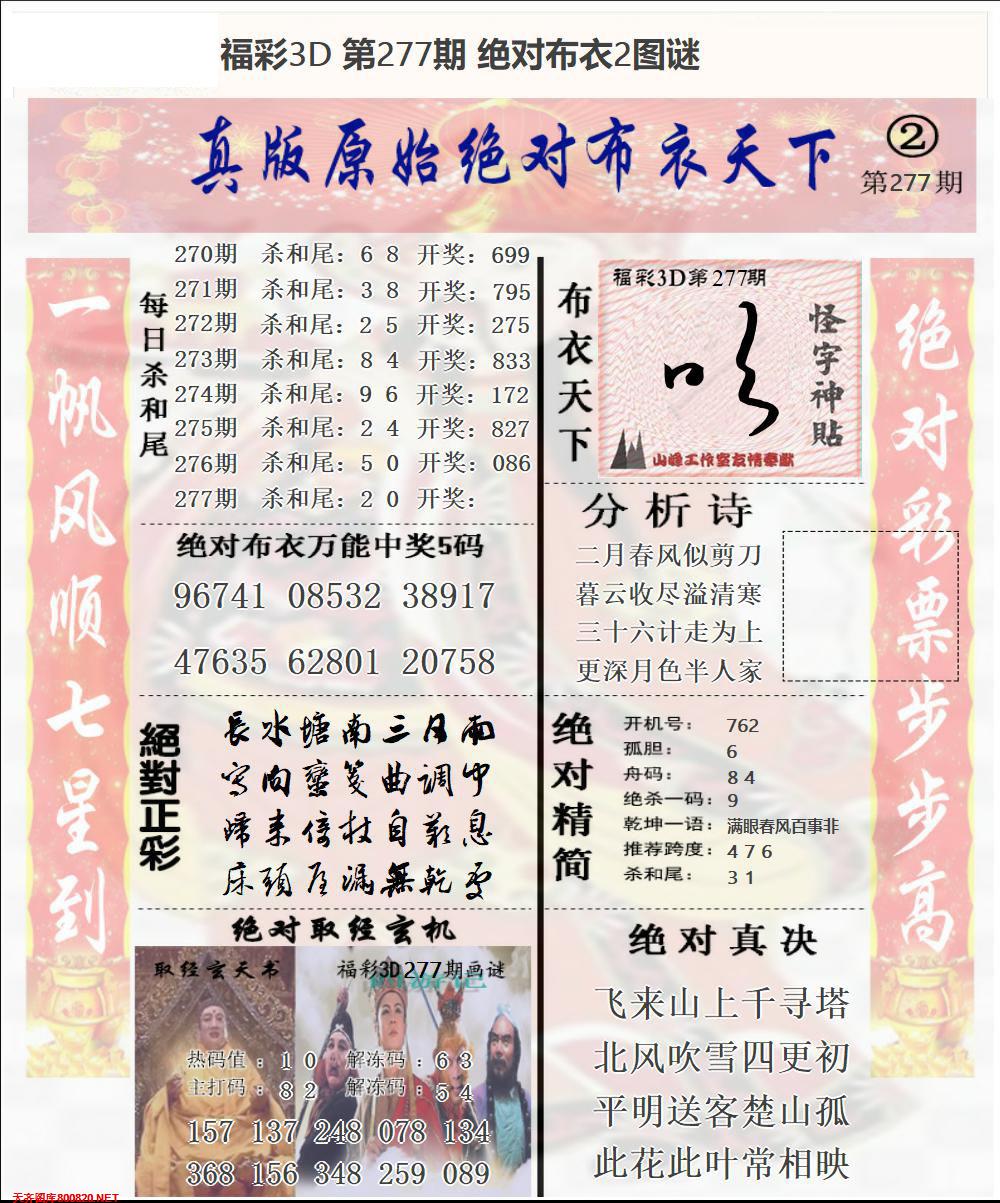 福彩3D 第277期 绝对布衣2图谜
真版原始绝对布衣天下
②
第277期
一帆风顺七星到
每日杀和尾
270期 杀和尾：6 8 开奖：699
271期 杀和尾：3 8 开奖：795
272期 杀和尾：2 5 开奖：275
273期 杀和尾：8 4 开奖：833
274期 杀和尾：9 6 开奖：172
275期 杀和尾：2 4 开奖：827
276期 杀和尾：5 0 开奖：086
277期 杀和尾：2 0 开奖：
绝对布衣万能中奖5码
96741 08532 38917
47635 62801 20758
絕對正彩
長水塘南三日雨
写向蠻箋曲調中
歸来倚杖自歎息
床頭屋漏無乾處
绝对取经玄机
取经玄天书
福彩3D277期画谜
热码值：1 0 解冻码：6 3
主打码：8 2 解冻码：5 4
157 137 248 078 134
368 156 348 259 089
布衣天下
福彩3D第277期
怪字神貼
山峰工作室友情奉献
分析诗
二月春风似剪刀
暮云收尽溢清寒
三十六计走为上
更深月色半人家
绝对精简
开机号：762
孤胆：6
舟码：8 4
绝杀一码：9
乾坤一语：满眼春风百事非
推荐跨度：4 7 6
杀和尾：3 1
绝对真决
飞来山上千寻塔
北风吹雪四更初
平明送客楚山孤
此花此叶常相映
绝对彩票步步高
天齐图库800820.NET